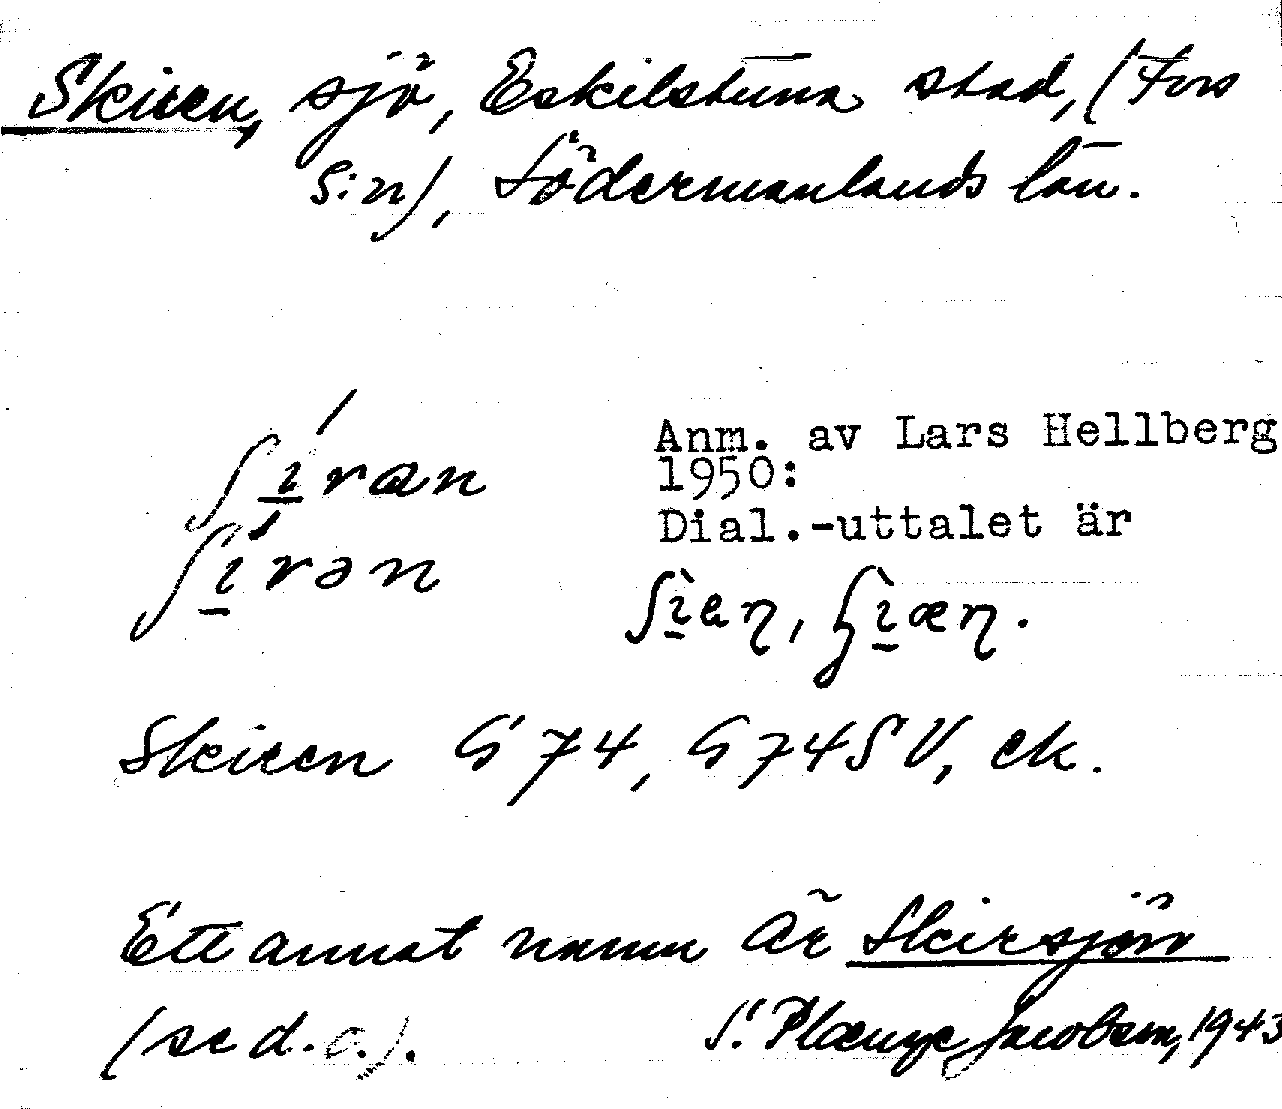 Skiren, sjö, Eskilstuna stad, (Fors
s:n), Södermanlands län.
ʃi̱ran
ʃi̱rən
Anm. av Lars Hellberg
1950:
Dial.-uttalet är
Skiren G 74, G 74 SV, ek.
Ett annat namn är Skirsjön
(se d. o.).
1943